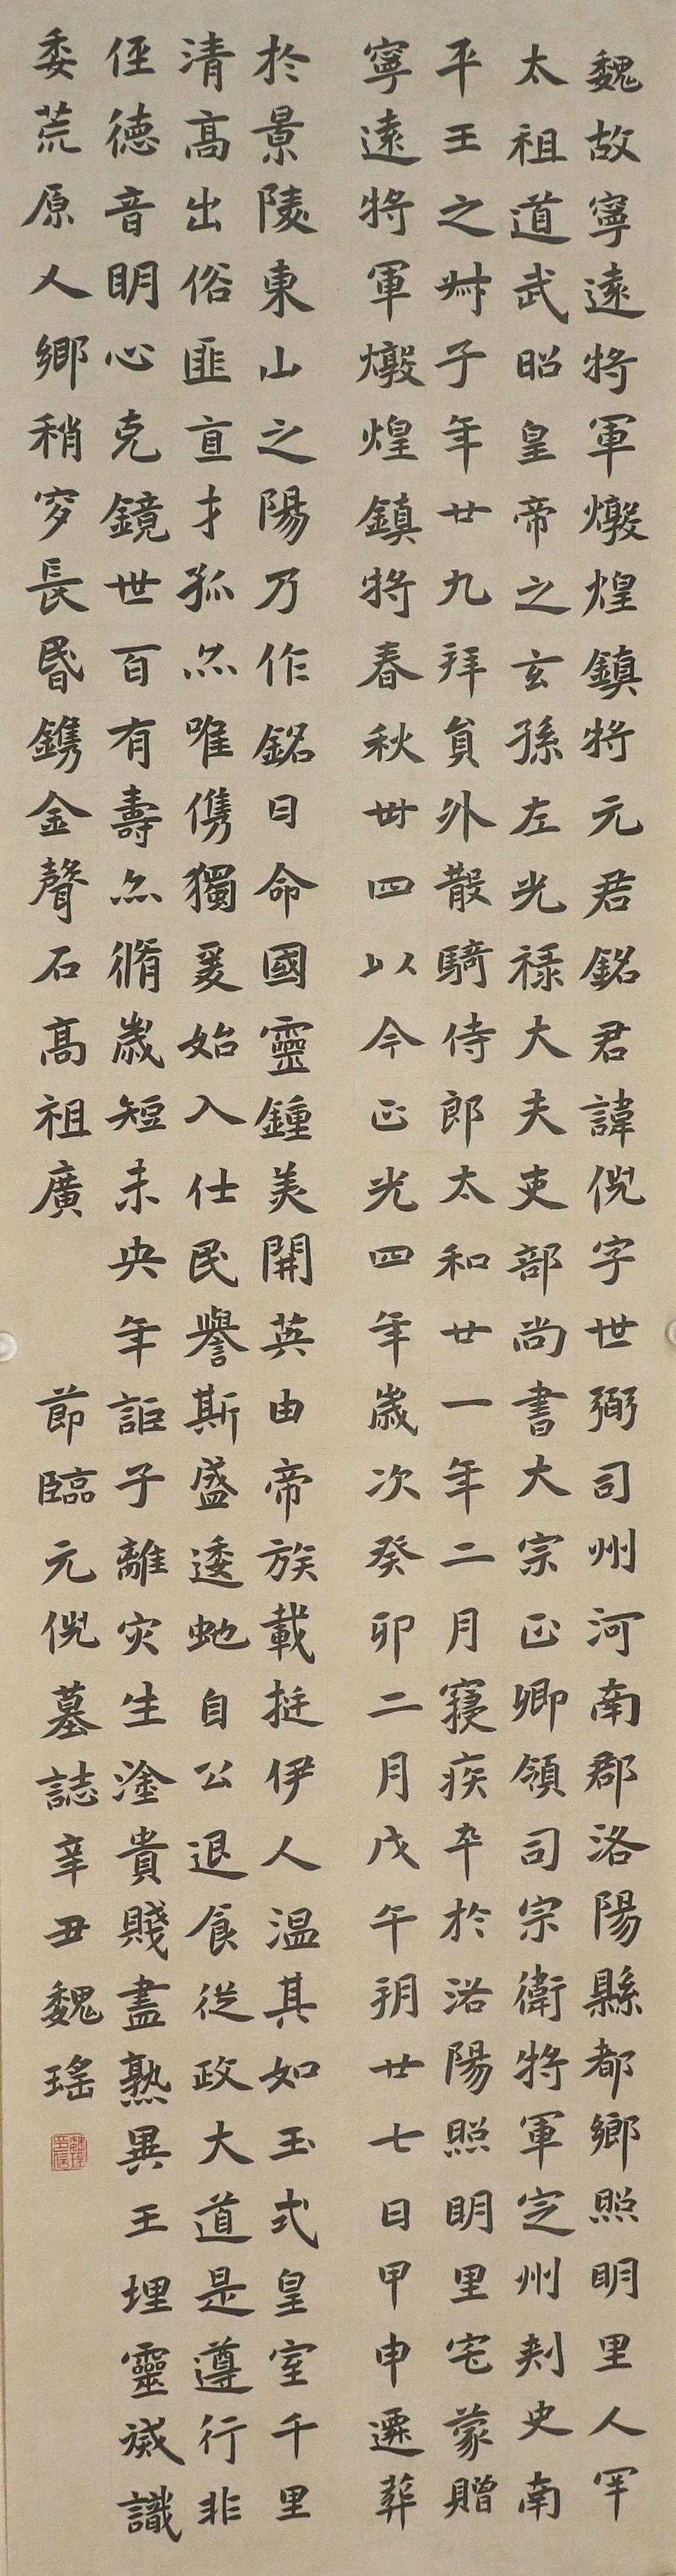 魏故寧遠將軍燉煌鎮將元君銘君諱倪字世弼司州河南郡洛陽縣都鄉照明里人罕
太祖道武昭皇帝之玄孫左光祿大夫吏部尚書大宗正卿領司宗衛將軍定州刺史南
平王之叔子年廿九拜員外散騎侍郎太和廿一年二月寢疾卒於洛陽照明里宅蒙贈
寧遠將軍燉煌鎮將春秋卌四以今正光四年歲次癸卯二月戊午朔廿七日甲申遷葬
於景陵東山之陽乃作銘曰命國靈鍾美開英由帝族載挺伊人溫其如玉式皇室千里
清高出俗匪直才孤亦唯儁獨爰始入仕民譽斯盛逶虵自公退食從政大道是遵行非
俓德音明心克鏡世百有壽亦脩歲短未央年詎子離灾生塗貴賤盡熟異王埋靈烖識
委荒原人鄉稍穸長昏鐫金聲石高祖廣
節臨元倪墓誌辛丑魏瑤